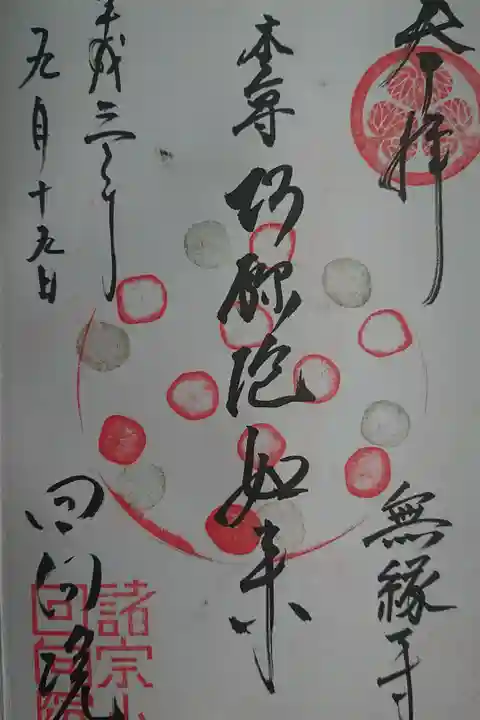 奉拝
無縁寺
本尊
阿弥陀如来
平成三十年
九月十九日
回向院
諸宗山
回向院